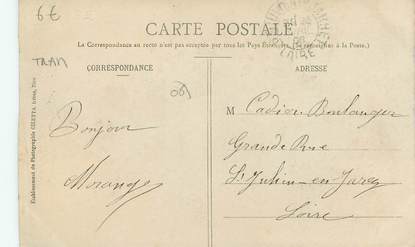 6€
CARTE POSTALE
La Correspondance au recto n'est pas acceptée par tous les Pays Étrangers. (Se renseigner à la Poste.)
TRAM
CORRESPONDANCE
Bonjour
Morange
Établissement de Photographie GILETTA, frères, Nice
ADRESSE
M Cadier Boulanger
Grande Rue
St Julien-en-Jarez
Loire